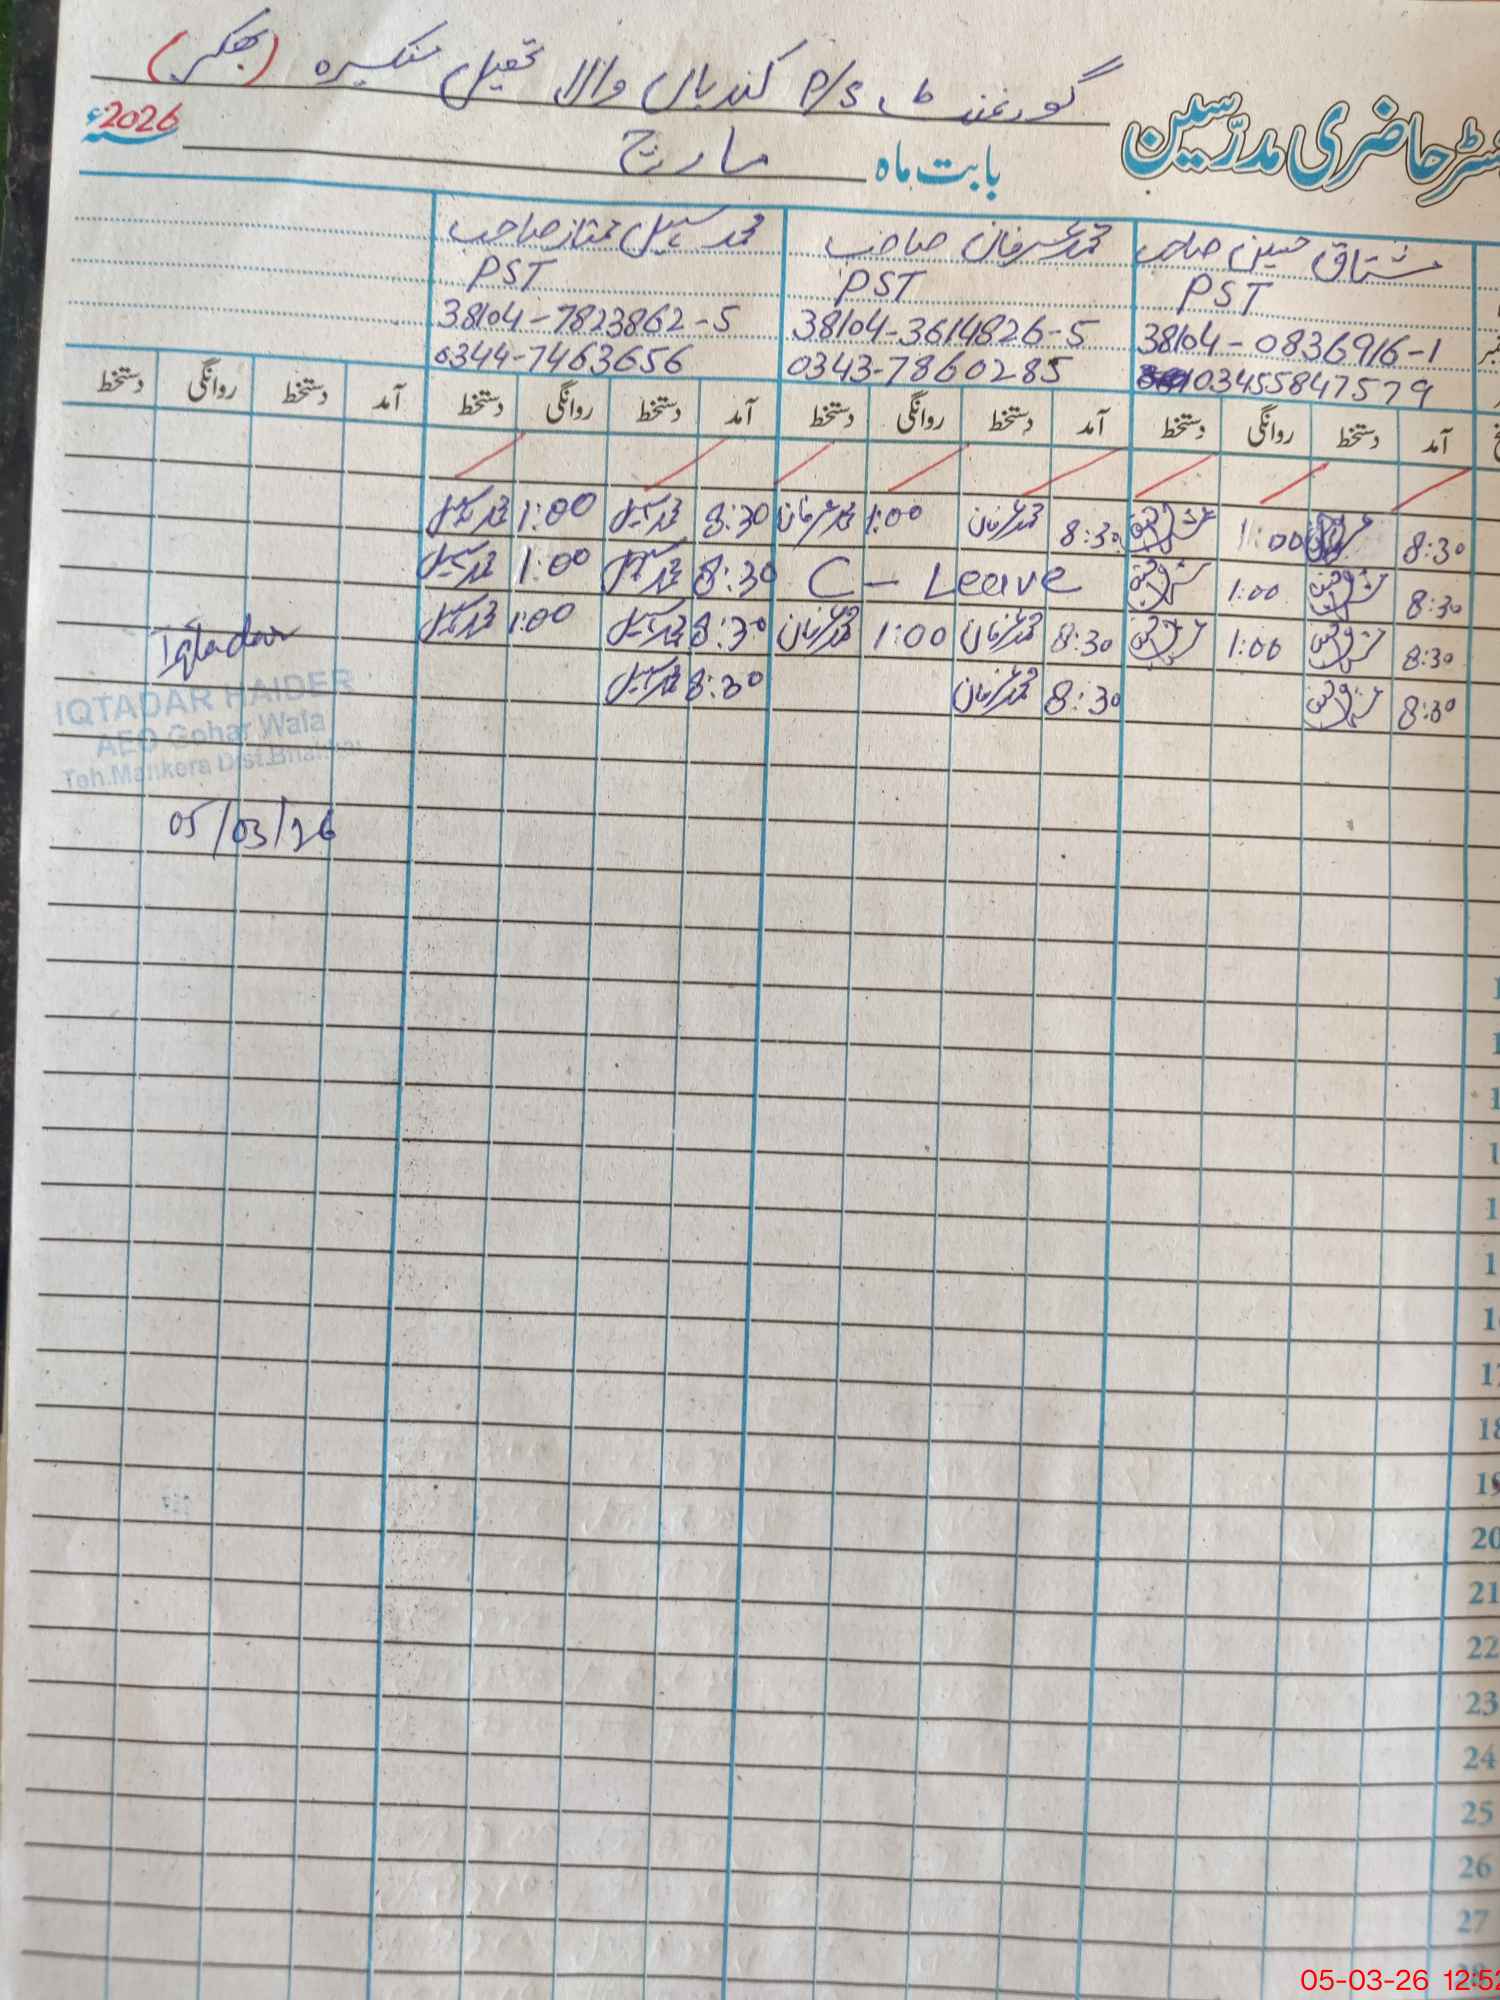 رجسٹر حاضری مدرّسین
گورنمنٹ P/S کندیاں والا تحصیل منکیرہ (بھکر)
بابت ماہ مارچ 2026ء
مشتاق حسین صاحب محمد عرفان صاحب محمد سہیل ممتاز صاحب
PST PST PST
38104-0836916-1 38104-3614826-5 38104-7823862-5
03455847579 0343-7860285 0344-7463656
آمد دستخط روانگی دستخط آمد دستخط روانگی دستخط آمد دستخط روانگی دستخط آمد دستخط روانگی دستخط
8:30 1:00 8:30 محمد عرفان 1:00 محمد عرفان 8:30 محمد سہیل 1:00 محمد سہیل
8:30 1:00 C - Leave 8:30 محمد سہیل 1:00 محمد سہیل
8:30 1:00 8:30 محمد عرفان 1:00 محمد عرفان 8:30 محمد سہیل 1:00 محمد سہیل
8:30 8:30 محمد عرفان 8:30 محمد سہیل
Iqtadar
IQTADAR HAIDER
AEO Gohar Wala
Teh.Mankera Dist.Bhakkar
05/03/26
17
18
19
20
21
22
23
24
25
26
27
28
05-03-26 12:52